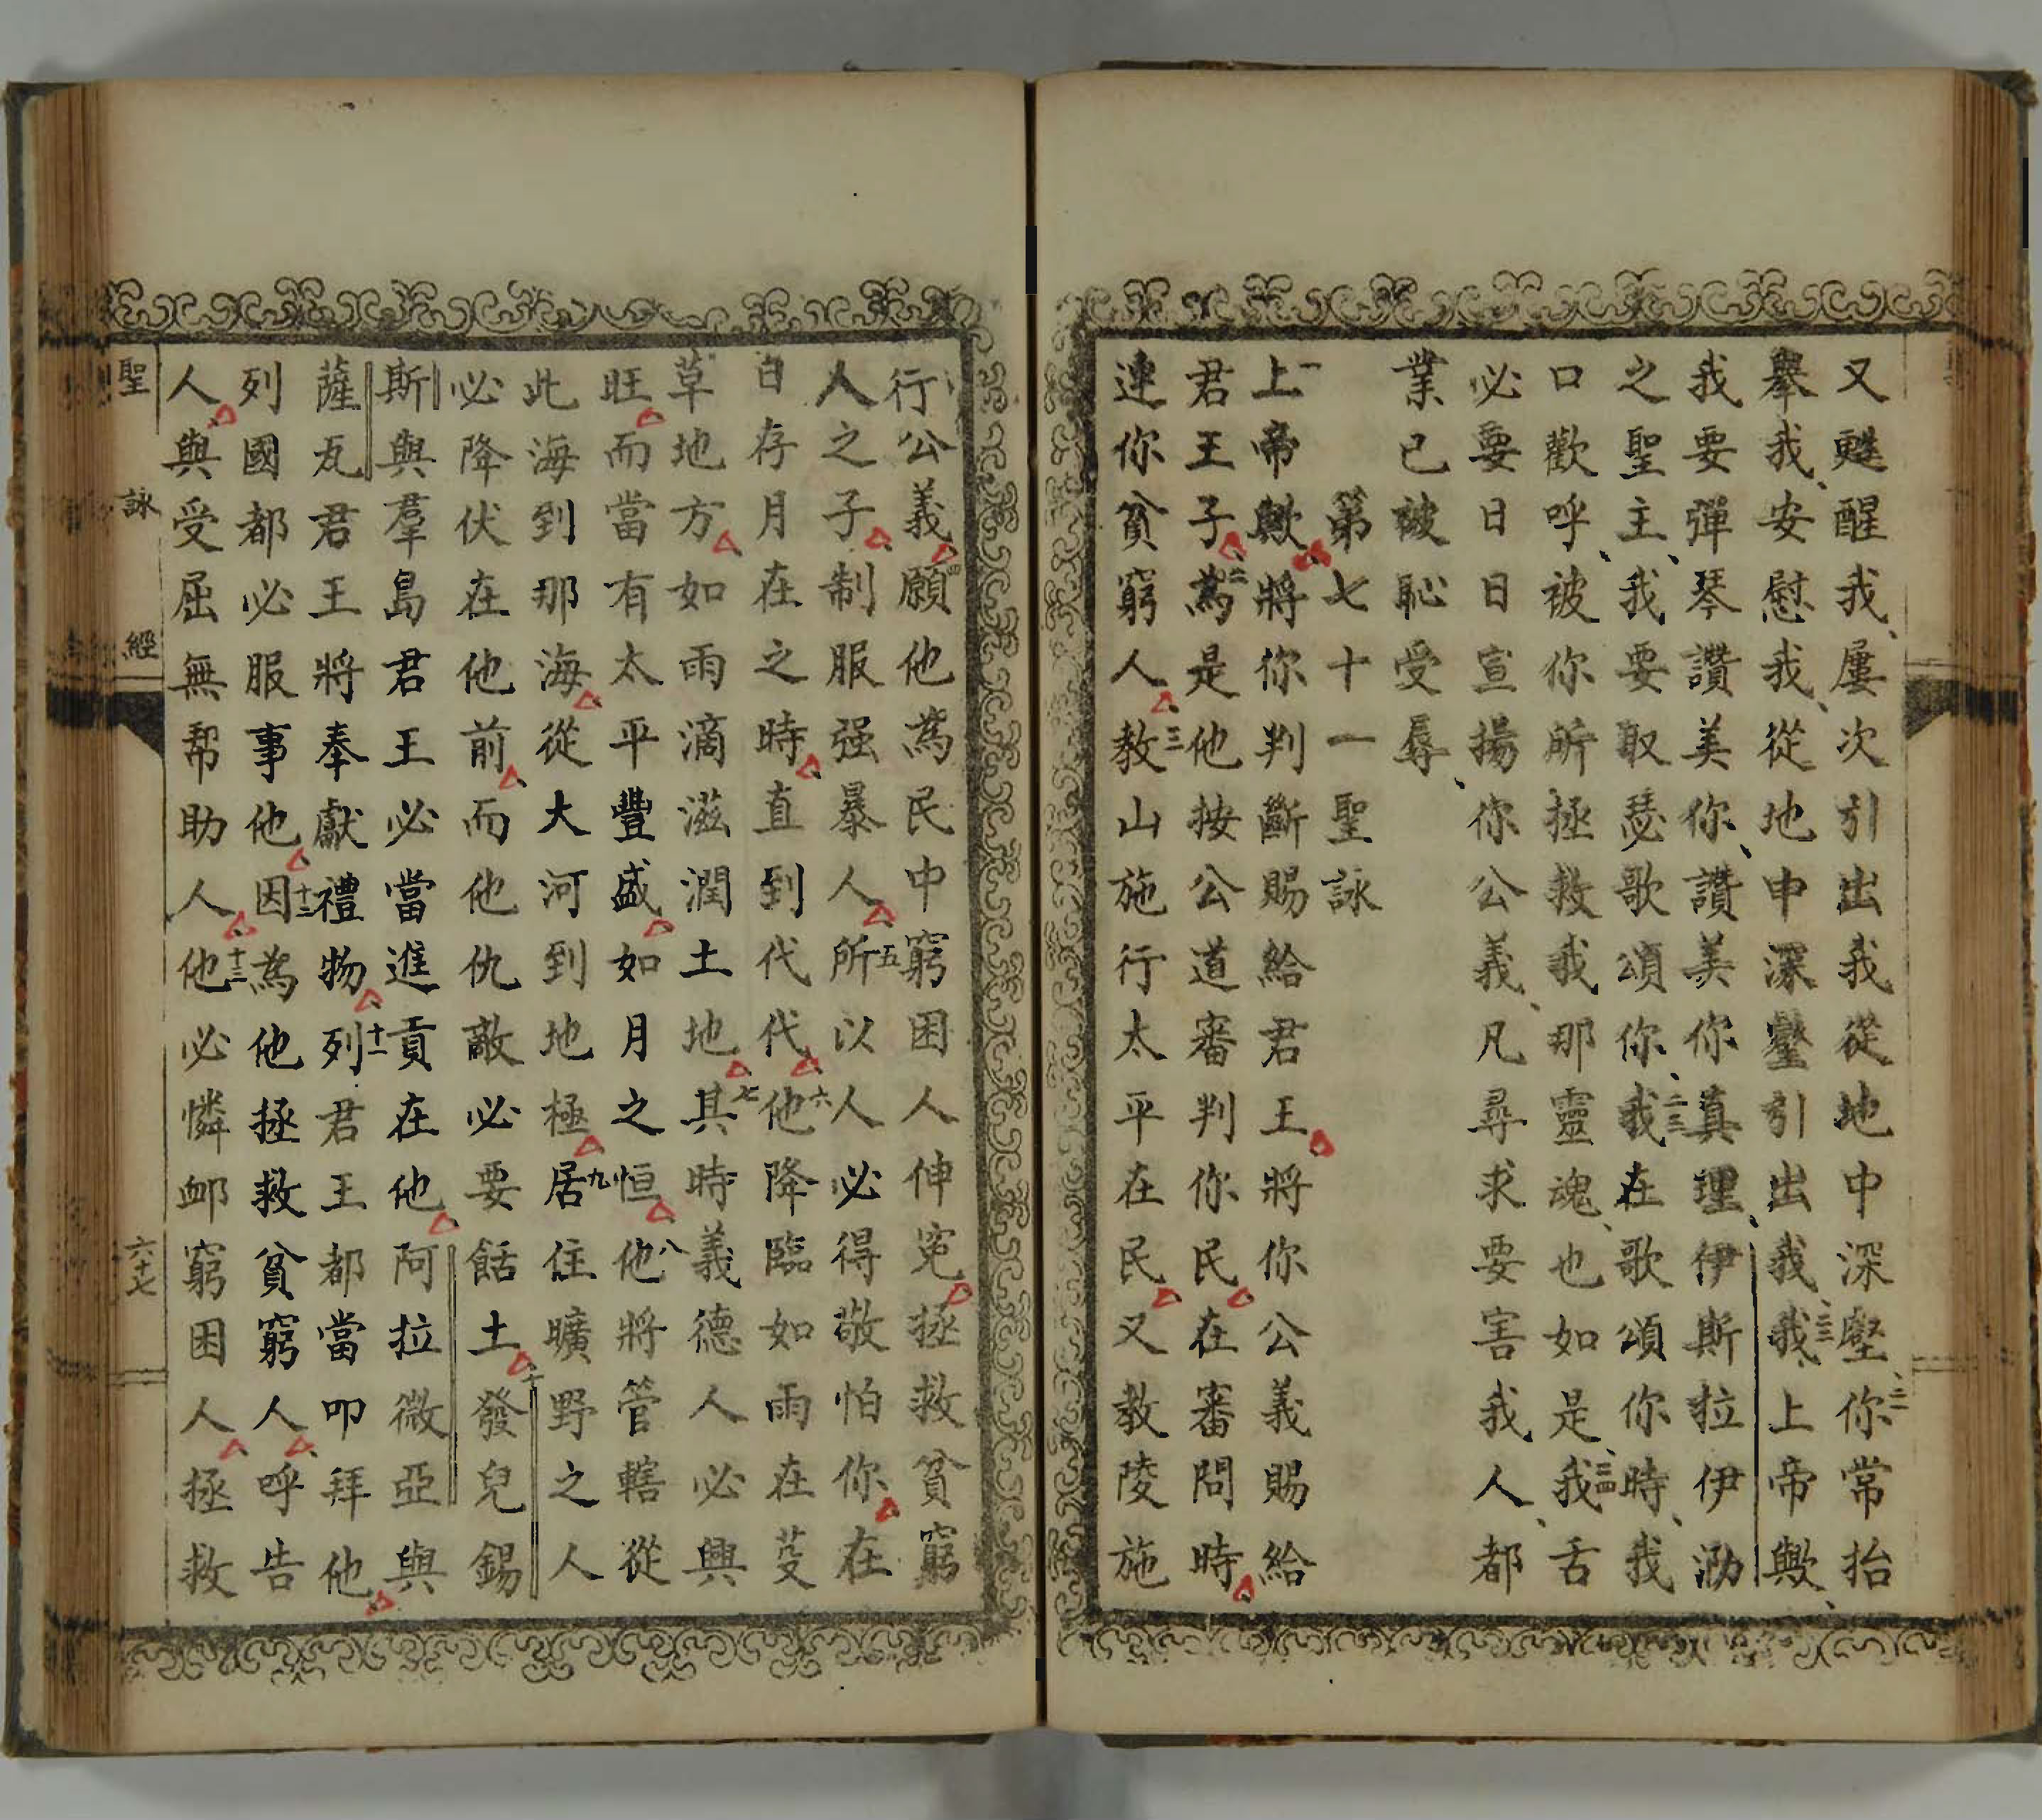 又甦醒我、屢次引出我從地中深壑、二一你常抬
舉我、安慰我、從地中深壑引出我、二二我上帝歟、
我要彈琴讚美你、讚美你真理、伊斯拉伊泐
之聖主、我要取瑟歌頌你、二三我在歌頌你時、我
口歡呼、被你所拯救我那靈魂、也如是、二四我舌
必要日日宣揚你公義、凡尋求要害我人、都
業已被恥受辱、
第七十一聖詠
一上帝歟、將你判斷賜給君王、將你公義賜給
君王子、二為是他按公道審判你民、在審問時、
連你貧窮人、三教山施行太平在民、又教陵施
行公義、四願他為民中窮困人伸冤、拯救貧窮
人之子、制服强暴人、五所以人必得敬怕你、在
日存月在之時、直到代代、六他降臨如雨在芟
草地方、如雨滴滋潤土地、七其時義德人必興
旺、而當有太平豐盛、如月之恒、八他將管轄從
此海到那海、從大河到地極、九居住曠野之人
必降伏在他前、而他仇敵必要餂土、十發兒錫
斯與羣島君王必當進貢在他、阿拉微亞與
薩瓦君王將奉獻禮物、十一列君王都當叩拜他、
列國都必服事他、十二因為他拯救貧窮人、呼告
人、與受屈無幫助人、十三他必憐卹窮困人、拯救
聖詠經
六十七